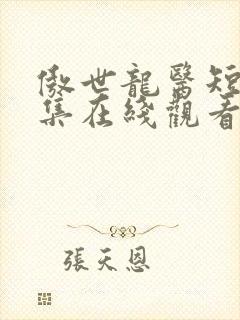 傲世龍醫短
集在綫觀看
張天恩